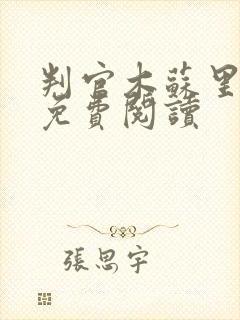 判官木蘇里
免費閱讀
張思宇